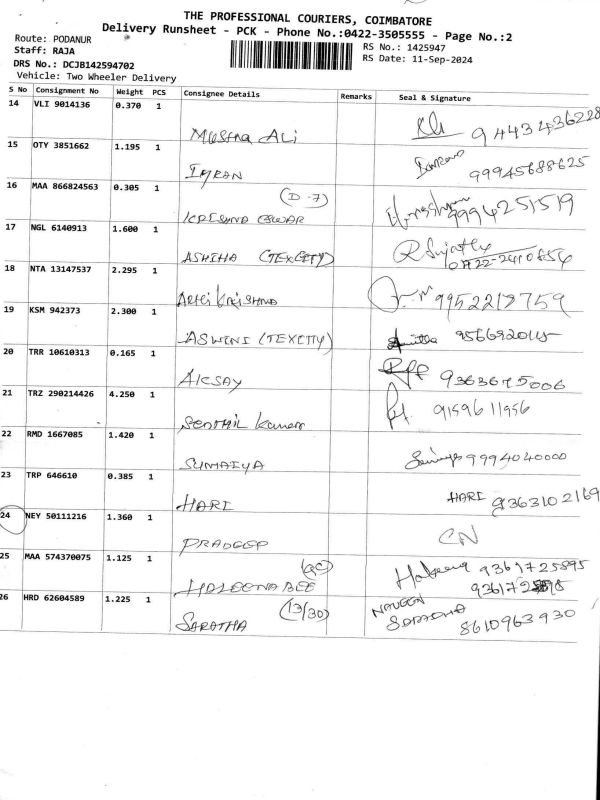 THE PROFESSIONAL COURIERS, COIMBATORE
Delivery Runsheet - PCK - Phone No.:0422-3505555 - Page No.:2
Route: PODANUR
RS No.: 1425947
Staff: RAJA
RS Date: 11-Sep-2024
DRS No.: DCJB142594702
Vehicle: Two Wheeler Delivery
S No Consignment No Weight PCS Consignee Details Remarks Seal & Signature
14 VLI 9014136 0.370 1
ALI 9443436228
15 OTY 3851662 1.195 1
IMRAN 99945688625
16 MAA 866824563 0.305 1
(D-7)
9994251519
17 NGL 6140913 1.600 1
(TEXCITY) 0422-2410854
18 NTA 13147537 2.295 1
KRISHNA
19 KSM 942373 2.300 1
ASWINI (TEXCITY)
20 TRR 10610313 0.165 1
AKSAY 9363675006
21 TRZ 290214426 4.250 1
SENTHIL Kumar 9159611956
22 RMD 1667085 1.420 1
SUMAIYA 9994040000
23 TRP 646610 0.385 1
HARI HARI 9363102169
24 NEY 50111216 1.360 1
PRADEEP CN
25 MAA 574370075 1.125 1
HALEENA BEE 9361725895
26 HRD 62604589 1.225 1
(13/30)
NAVEEN
SARATHA 8610963930